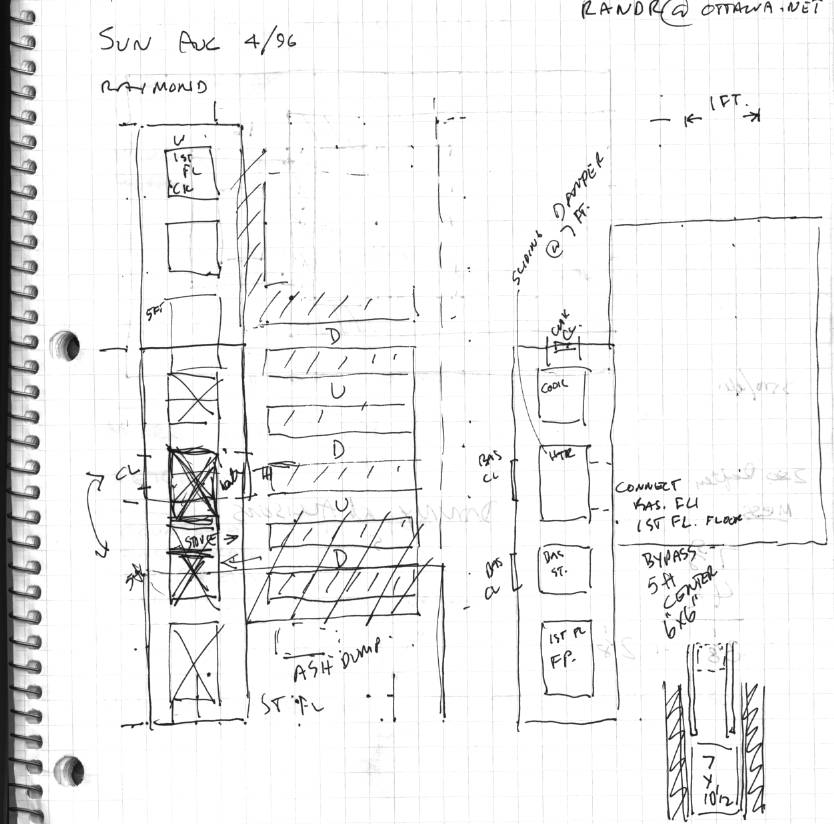 RANDR@OTTAWA.NET
SUN AUG 4/96
RAYMOND
1FT.
U
1ST
FL
CK
SLIDING DAMPER
@ 7 FT.
D
U
D
U
D
CL
STOVE
ASH DUMP
ST FL
COOK
HTR
BAS
CL
BAS
CL
BAS
ST.
1ST FL
FP.
CONNECT
BAS. FLU
1ST FL. FLOOR
BYPASS
5 ft
CENTER
6"x6"
7
x
10'12